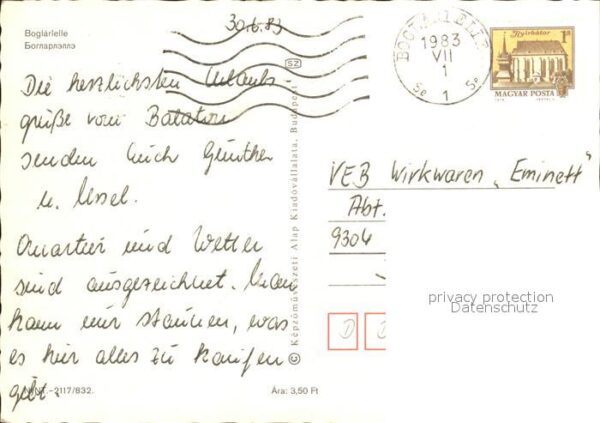 Boglárlelle
Богларлэллэ
30.6.83
Die herzlichsten Urlaubs-
grüße vom Balaton
senden Euch Günther
u. Ursel.
Quartier und Wetter
sind ausgezeichnet. Man
kann nur staunen, was
es hier alles zu kaufen
gibt.
-2117/832.
Ára: 3,50 Ft
© Képzőművészeti Alap Kiadóvállalata, Budapest
SZ
1983
VII
1
1
Nyírbátor
1 Ft
MAGYAR POSTA
VEB Wirkwaren „Eminett"
Abt.
9304
D D
privacy protection
Datenschutz